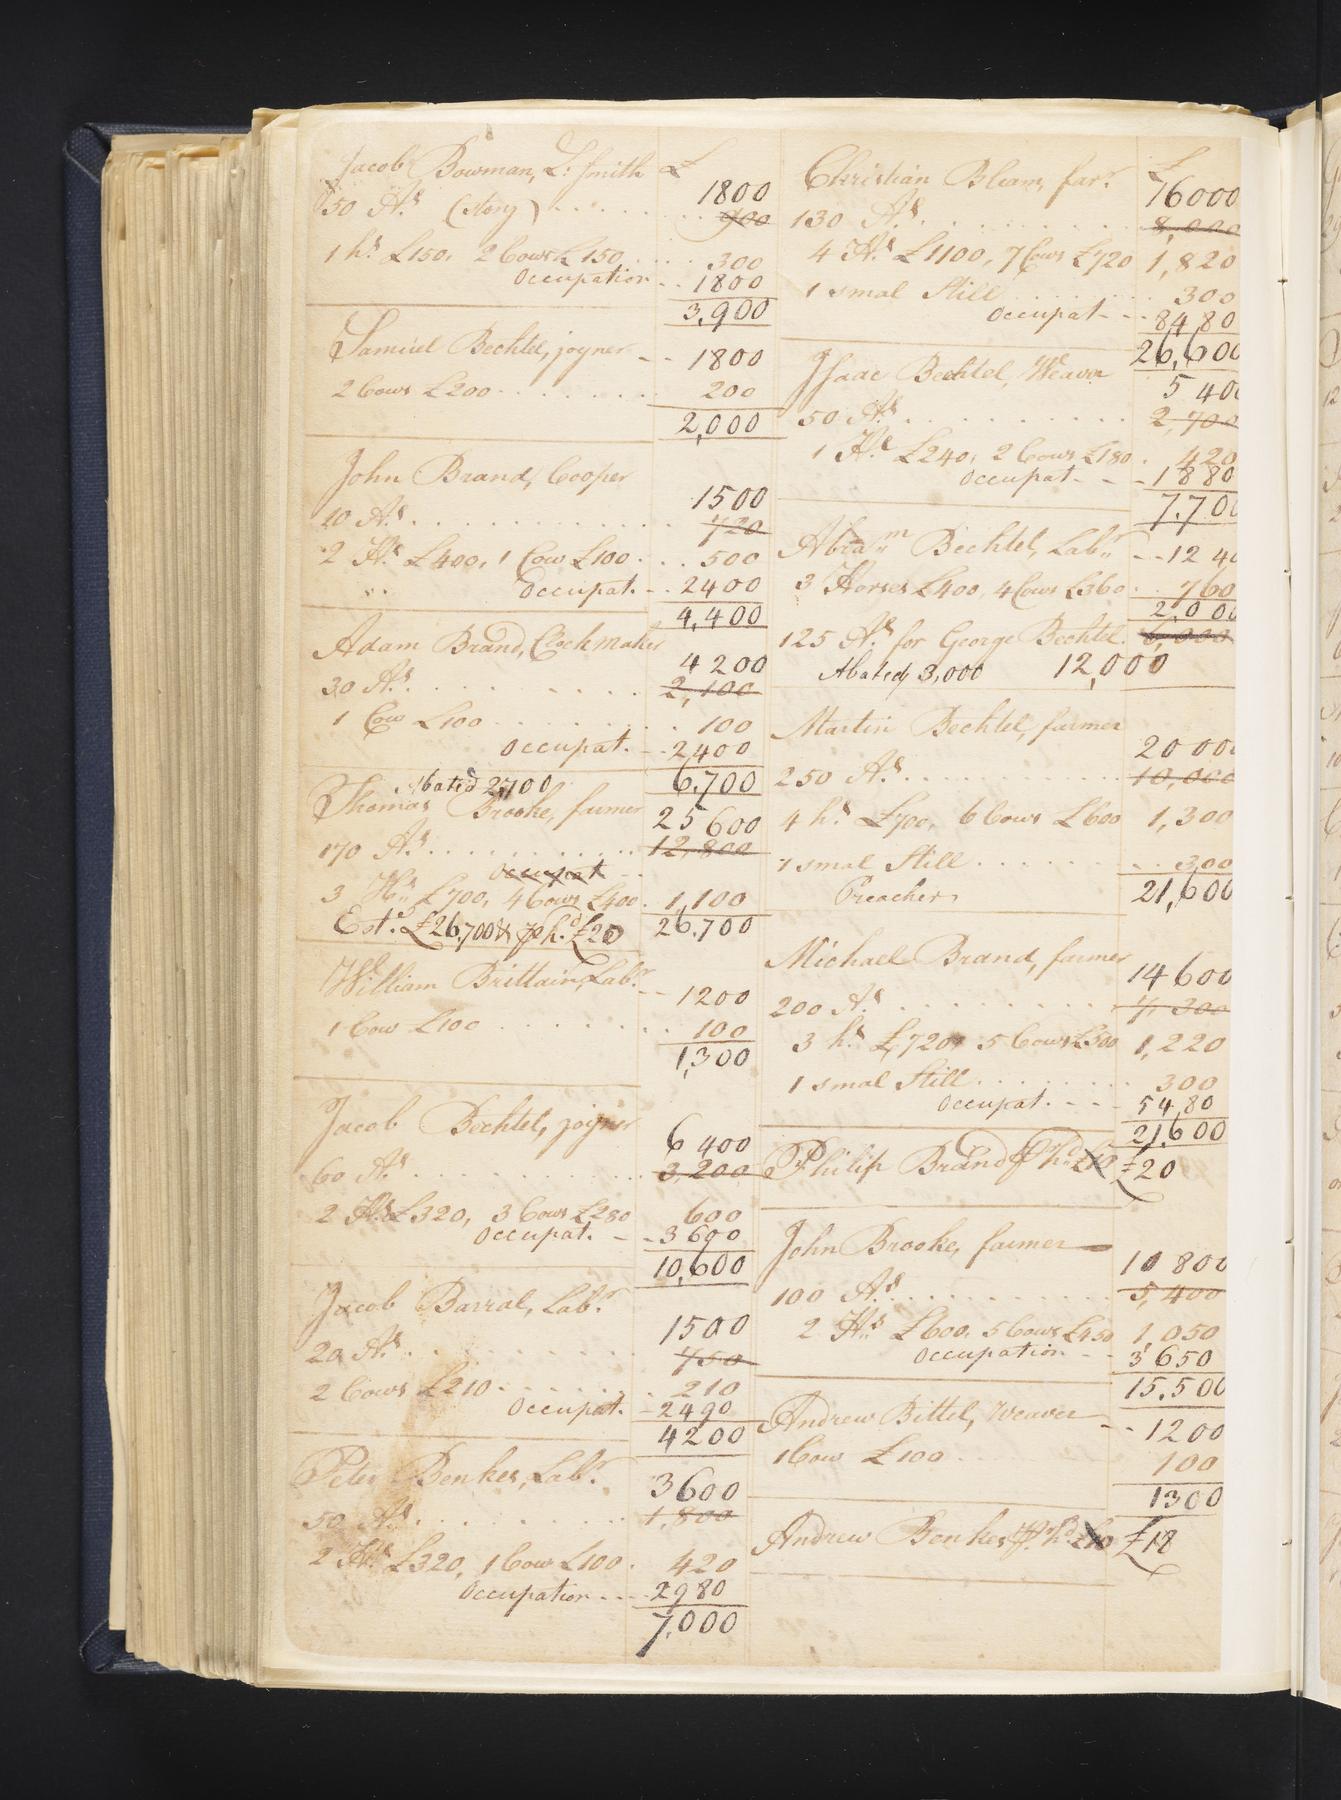 Jacob Bowman, L: Smith £
50 A.s (Stony) 1800
900
1 h.s £150, 2 Cows £150 300
Occupation 1800
3,900
Samuel Bechtel, joyner 1800
2 Cows £200 200
2,000
John Brand, Cooper
1500
20 A.s 720
2 H.s £400, 1 Cow £100 500
Occupat. 2400
4,400
Adam Brand, Clockmaker
4200
30 A.s 2,100
1 Cow £100 100
Occupat. 2400
6,700
Abated 2,700
Thomas Brooke, farmer 25600
170 A.s 12,800
Occupat
3 H.s £700, 4 Cows £400 1,100
Est.d £26,700 & p h.d £20 26,700
William Brittain, Lab.r
1200
1 Cow £100 100
1,300
Jacob Bechtel, joyner
6400
60 A.s 3,200
2 H.s £320, 3 Cows £280 600
Occupat. 3600
10,600
Jacob Barral, Lab.r
1500
20 A.s 750
2 Cows £210 210
Occupat. 2490
4200
Peter Benker, Lab.r
3600
50 A.s 1,800
2 H.s £320, 1 Cow £100 420
Occupation 2980
7,000
Christian Bliam, far.r £
16000
130 A.s 8,000
4 H.s £1100, 7 Cows £720 1,820
1 smal Still 300
Occupat 8480
26,600
Isaac Bechtel, Weaver
5400
50 A.s 2,700
1 H.s £240, 2 Cows £180 420
Occupat 1880
7,700
Abra.m Bechtel, Lab.r 1240
3 Horses £400, 4 Cows £360 760
2,000
125 A.s for George Bechtel 6,000
Abated 3,000 12,000
Martin Bechtel, farmer
20000
250 A.s 10,000
4 h.s £700, 6 Cows £600 1,300
1 smal Still 300
Preacher 21,600
Michael Brand, farmer
14600
200 A.s 7,300
3 h.s £720, 5 Cows £500 1,220
1 smal Still 300
Occupat. 5480
21,600
Philip Brand p h.d £10 £20
John Brooke, farmer
10800
100 A.s 5,400
2 H.s £600, 5 Cows £450 1,050
Occupation 3650
15,500
Andrew Bittel, Weaver 1200
1 Cow £100 100
1300
Andrew Benker p h.d £10 £18